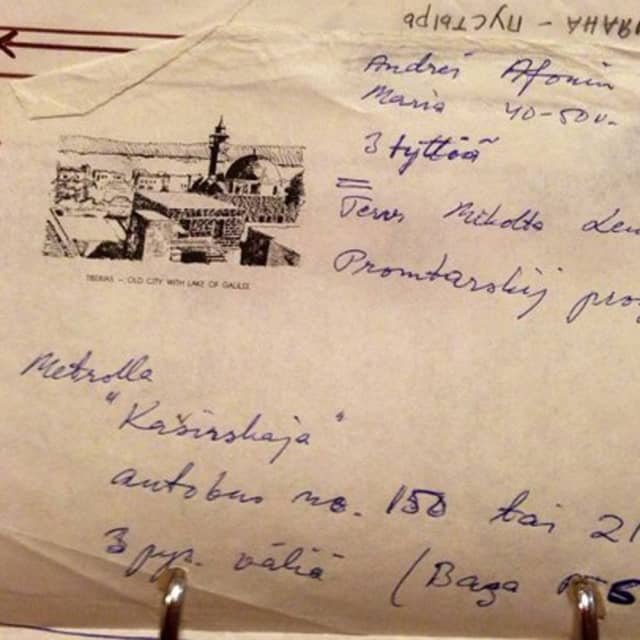 ИЯАНА - ПУСТЫРЬ
Andrei Afonin
Maria 40-50v.
3 tyttöä
Terv. Mikolta
TIBERIAS - OLD CITY WITH LAKE OF GALILEE
Metrolla
"Kaširskaja"
autobus no. 150 tai 21
3 pys. väliä (Baza